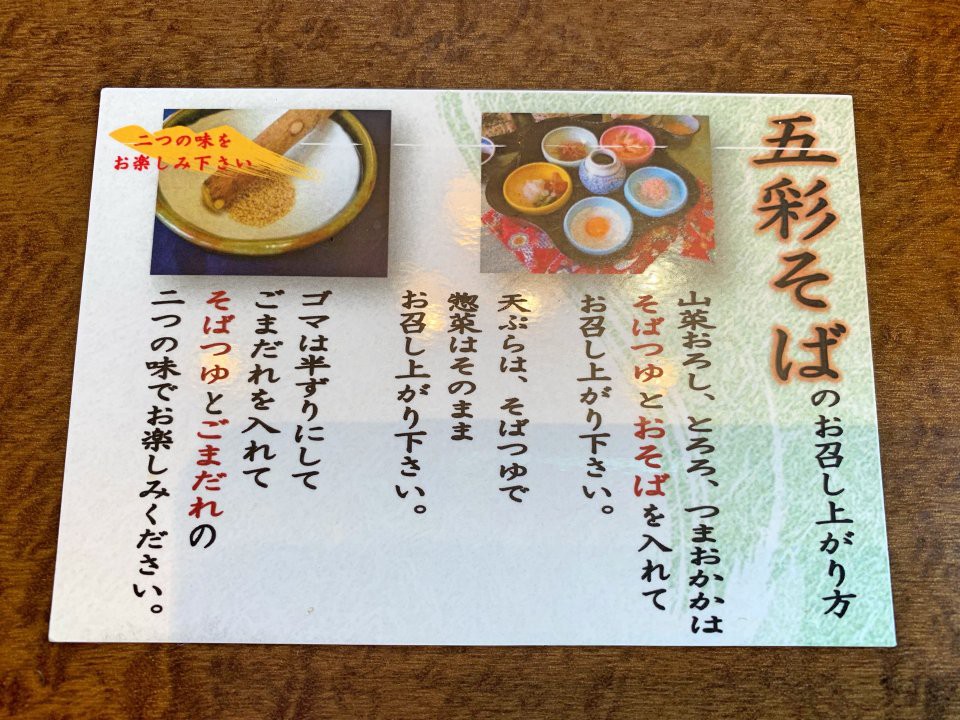 五彩そばのお召し上がり方
山菜おろし、とろろ、つまおかかは
そばつゆとおそばを入れて
お召し上がり下さい。
天ぷらは、そばつゆで
惣菜はそのまま
お召し上がり下さい。
二つの味を
お楽しみ下さい
ゴマは半ずりにして
ごまだれを入れて
そばつゆとごまだれの
二つの味でお楽しみください。